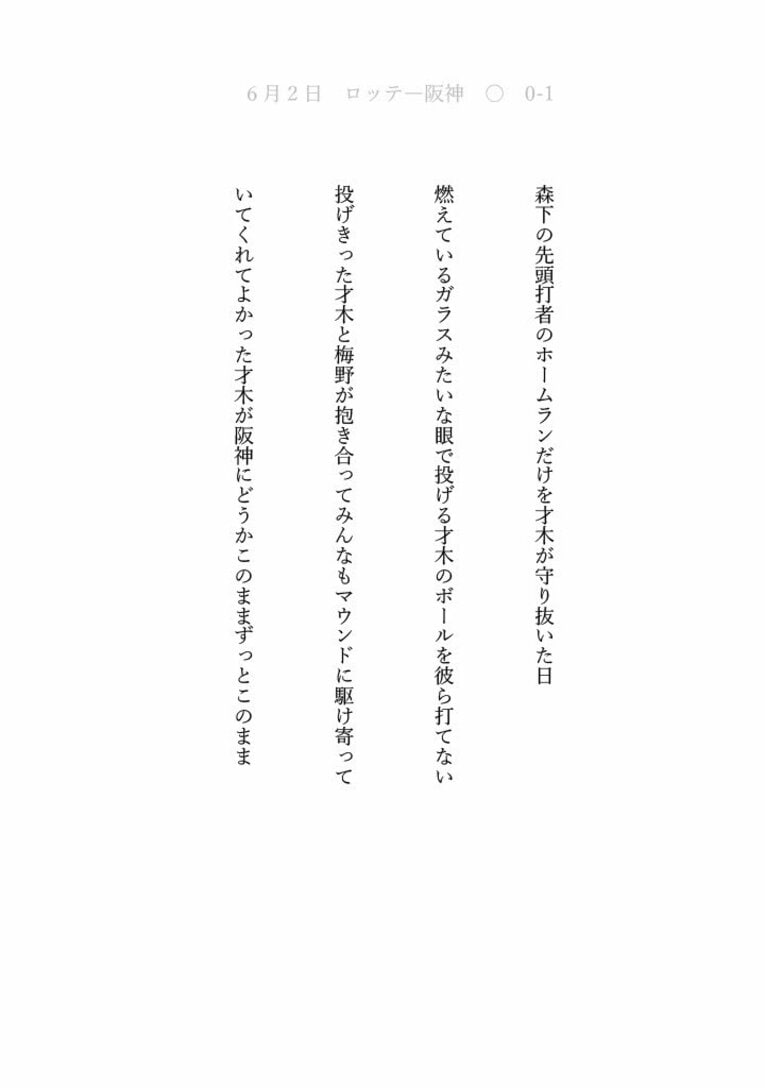 ６月２日　ロッテ―阪神　〇　0-1
森下の先頭打者のホームランだけを才木が守り抜いた日
燃えているガラスみたいな眼で投げる才木のボールを彼ら打てない
投げきった才木と梅野が抱き合ってみんなもマウンドに駆け寄って
いてくれてよかった才木が阪神にどうかこのままずっとこのまま